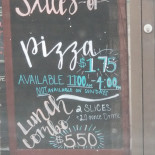 Slices of
pizza $1.75
AVAILABLE 1100am-4:00pm
(NOT AVAILABLE ON SUNDAY)
Lunch
Combo
2 SLICES
+ 20 ounce Drink
$5.50